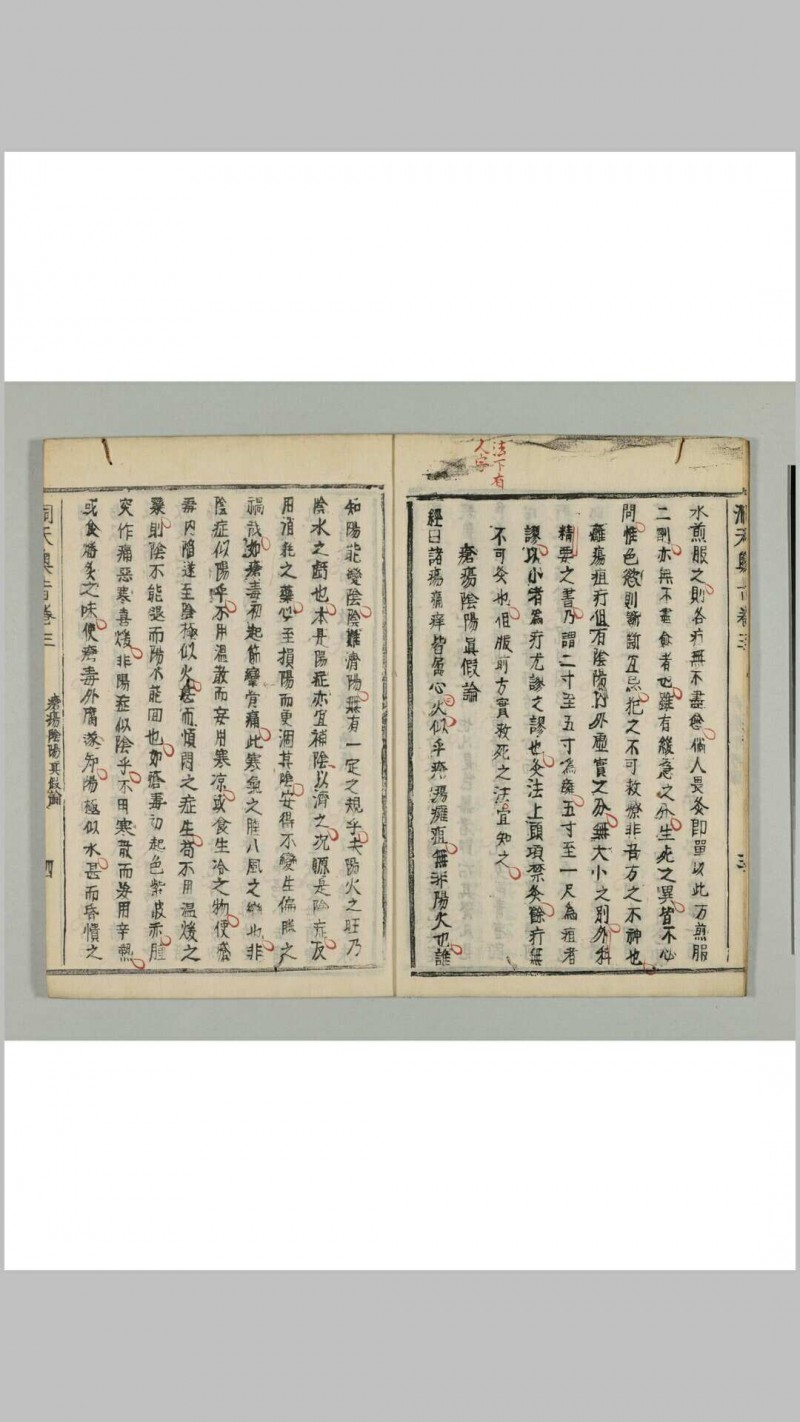 法下有
人字
洞天奧旨卷三
三
水煎服之則各疔無不盡愈倘人畏灸即單以此方煎服
二劑亦無不盡愈者也雖有緩急之分生死之異皆不必
問惟色慾則斷斷宜忌犯之不可救療非吾方之不神也
癰瘍疽疔但有陰陽內外虛實之分無大小之別外科
精要之書乃謂二寸至五寸為癰五寸至一尺為疽者
謬以小者為疔尤謬之謬也灸法上頭項禁灸餘疔無
不可灸也但服前方實救死之法宜知之
瘡瘍陰陽真假論
經曰諸瘍痛痒皆屬心火似乎瘡瘍癰疽無非陽火也誰
知陽能變陰陰難濟陽無有一定之規乎夫陽火之旺乃
陰水之虧也本是陽症亦宜補陰以濟之況原是陰症反
用消耗之藥必至損陽而更涸其陰安得不變生偏勝之
禍哉如瘡毒初起筋攣骨痛此寒氣之勝八風之變也非
陰症似陽乎不用溫散而妄用寒涼或食生冷之物便瘡
毒內陷遂至陰極似火甚而煩悶之症生苟不用溫煖之
藥則陰不能退而陽不能回也如瘡毒初起色紫皮赤腫
突作痛惡寒喜煖非陽症似陰乎不用寒散而務用辛熱
或食燔炙之味便瘡毒外腐遂知陽極似水甚而昏憒之
洞天奧旨卷三
瘡瘍陰陽真假論
四